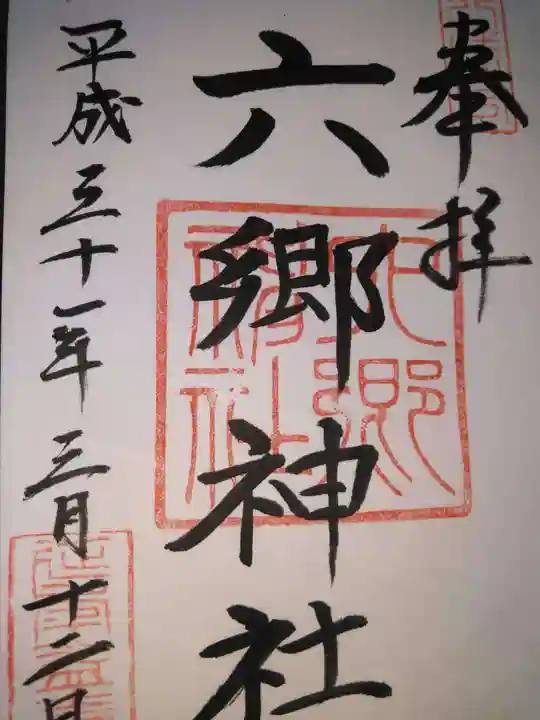 奉拝
六郷神社
六郷神社
平成三十一年三月十二日